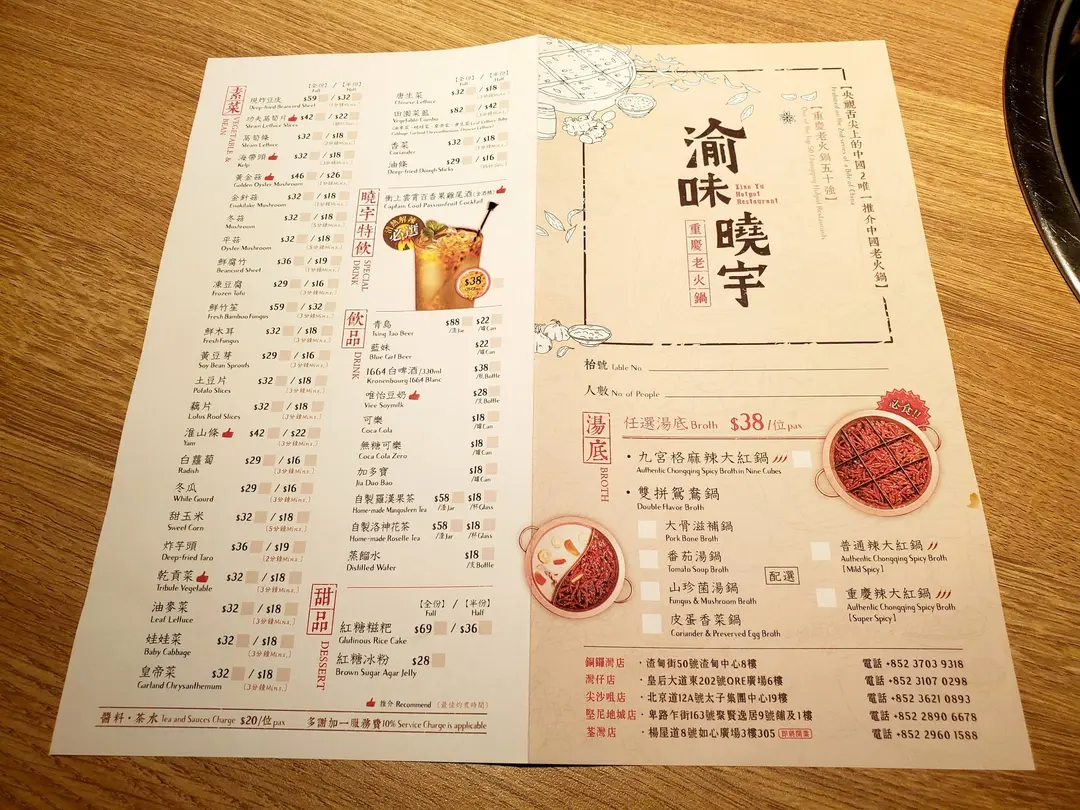 素菜 VEGETABLE & BEAN
【全份】 / 【半份】
Full Half
現炸豆皮 $59 / $32
Deep-fried Beancurd Sheet
功夫萵筍片 $42 / $22
Steam Lettuce Slices
萵筍條 $32 / $18
Steam Lettuce
海帶頭 $32 / $18
Kelp
黃金菇 $46 / $26
Golden Oyster Mushroom
金針菇 $32 / $18
Enokitake Mushroom
冬菇 $32 / $18
Mushroom
平菇 $32 / $18
Oyster Mushroom
鮮腐竹 $36 / $19
Beancurd Sheet
凍豆腐 $29 / $16
Frozen Tofu
鮮竹笙 $59 / $32
Fresh Bamboo Fungus
鮮木耳 $32 / $18
Fresh Fungus
黃豆芽 $29 / $16
Soy Bean Sprouts
土豆片 $32 / $18
Potato Slices
藕片 $32 / $18
Lotus Root Slices
淮山條 $42 / $22
Yam
白蘿蔔 $29 / $16
Radish
冬瓜 $29 / $16
White Gourd
甜玉米 $32 / $18
Sweet Corn
炸芋頭 $36 / $19
Deep-fried Taro
乾貢菜 $32 / $18
Tribute Vegetable
油麥菜 $32 / $18
Leaf Lettuce
娃娃菜 $32 / $18
Baby Cabbage
皇帝菜 $32 / $18
Garland Chrysanthemum
【全份】 / 【半份】
Full Half
唐生菜 $32 / $18
Chinese Lettuce
田園菜籃 $82 / $42
Vegetable Combo
香菜 $32 / $18
Coriander
油條 $29 / $16
Deep-fried Dough Sticks
曉宇特飲 SPECIAL DRINK
衝上雲霄百香果雞尾酒(含酒精)
Captain Cool Passionfruit Cocktail
必選
$38
飲品 DRINK
青島 $88 /渣Jar $22 /罐Can
Tsing Tao Beer
藍妹 $22 /罐Can
Blue Girl Beer
1664白啤酒/330ml $38 /枝Bottle
Kronenbourg 1664 Blanc
唯怡豆奶 $28 /支Bottle
Viee Soymilk
可樂 $18 /罐Can
Coca Cola
無糖可樂 $18 /罐Can
Coca Cola Zero
加多寶 $18 /罐Can
Jia Duo Bao
自製羅漢果茶 $58 /渣Jar $18 /杯Glass
Home-made Mangosteen Tea
自製洛神花茶 $58 /渣Jar $18 /杯Glass
Home-made Roselle Tea
蒸餾水 $18 /支Bottle
Distilled Water
甜品 DESSERT
【全份】 / 【半份】
Full Half
紅糖糍粑 $69 / $36
Glutinous Rice Cake
紅糖冰粉 $28
Brown Sugar Agar Jelly
推介 Recommend 〔最佳灼煮時間〕
醬料・茶水 Tea and Sauces Charge $20/位pax 多謝加一服務費10% Service Charge is applicable
【央視舌尖上的中國2唯一推介中國老火鍋】
【重慶老火鍋五十強】
渝味曉宇
Xiao Yu
Hotpot
Restaurant
重慶老火鍋
枱號 Table No.
人數 No. of People
湯底 BROTH
任選湯底 Broth $38/位pax
必食!!
・九宮格麻辣大紅鍋
Authentic Chongqing Spicy Broth in Nine Cubes
・雙拼鴛鴦鍋
Double Flavor Broth
大骨滋補鍋
Pork Bone Broth
番茄湯鍋
Tomato Soup Broth
山珍菌湯鍋
Fungus & Mushroom Broth
皮蛋香菜鍋
Coriander & Preserved Egg Broth
配選
普通辣大紅鍋
Authentic Chongqing Spicy Broth
【Mild Spicy】
重慶辣大紅鍋
Authentic Chongqing Spicy Broth
【Super Spicy】
銅鑼灣店・渣甸街50號渣甸中心8樓 電話 +852 3703 9318
灣仔店・皇后大道東202號ORE廣場6樓 電話 +852 3107 0298
尖沙咀店・北京道12A號太子集團中心19樓 電話 +852 3621 0893
堅尼地城店・卑路乍街163號聚賢逸居9號舖及1樓 電話 +852 2890 6678
荃灣店・楊屋道8號如心廣場3樓305 即將開業 電話 +852 2960 1588